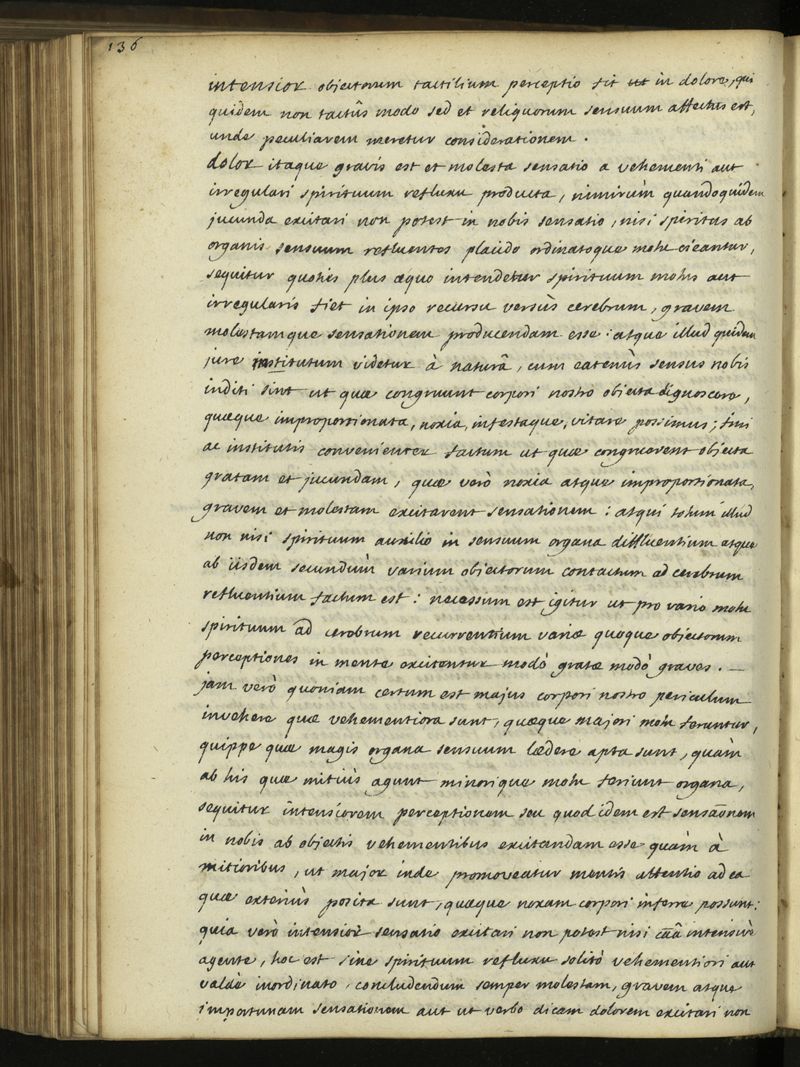 136
intensior objectorum tactilium perceptio sit ut in dolore, qui
quidem non tactûs modo sed et reliquorum sensuum affectus est,
unde peculiarem meretur considerationem.
dolor itaque gravis est et molesta sensatio a vehementi aut
irregulari spirituum refluxu producta, nimirùm quandoquidem
jucunda excitari non potest in nobis sensatio, nisi spiritus ab
organis sensuum refluentes placido ordinatoque motu cieantur,
sequitur quoties plus æquo intendetur spirituum motus aut
irregularis fiet in ipso recursu versùs cerebrum, gravem
molestamque sensationem producendam esse: atque illud quidem
jure institutum videtur à naturâ, cum eatenùs sensus nobis
inditi sint ut quæ congruunt corpori nostro objecta dignoscere,
quæque improportionata, noxia, infestaque, vitare possimus; fini
ac institutis convenienter factum ut quæ congruerent objecta
gratam et jucundam, quæ verò noxia atque improportionata,
gravem et molestam excitarent sensationem: atqui totum illud
non nisi spirituum auxilio in sensuum organa diffluentium atque
ab iisdem secundùm varium objectorum contactum ad cerebrum
refluentium factum est: necessum est igitur ut pro vario motu
spirituum ad cerebrum recurrentium variæ quoque objectorum
perceptiones in mente excitentur modò gratæ modò graves. —
jam verò quoniam certum est majus corpori nostro periculum
invehere quæ vehementiora sunt, quæque majori motu feruntur,
quippe quæ magis organa sensuum lædere apta sunt, quàm
ab his quæ mitiùs agunt minorique motu feriunt organa,
sequitur intensiorem perceptionem seu quod idem est sensãonem
in nobis ab objectis vehementibus excitandam esse quàm à
mitioribus, ut major inde promoveatur mentis attentio ad ea
quæ exteriùs posita sunt, quæque noxam corpori inferre possunt:
quia verò intensior sensatio excitari non potest nisi cãâ intensivè
agente, hoc est sine spirituum refluxu solitò vehementiori aut
valdè inordinato, concludendum semper molestam, gravem atque
importunam sensationem aut ut verbo dicam dolorem excitari non